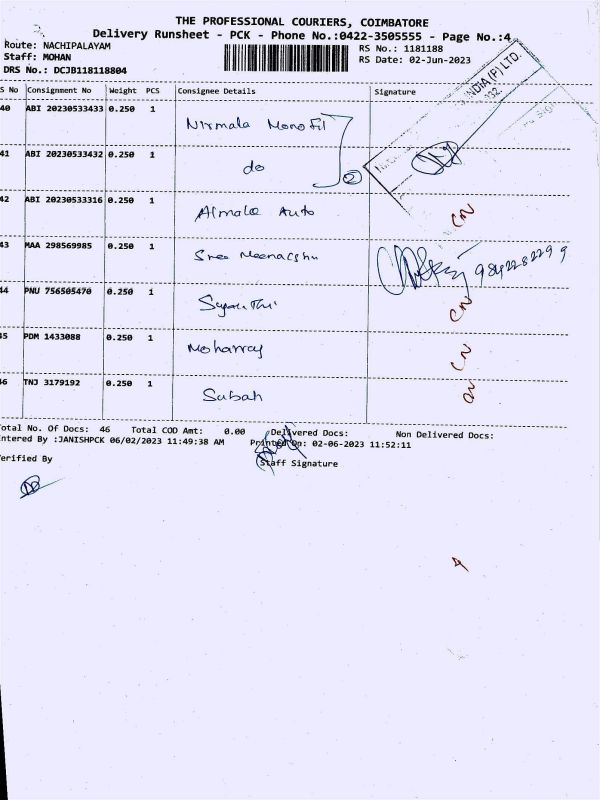 THE PROFESSIONAL COURIERS, COIMBATORE
Delivery Runsheet - PCK - Phone No.:0422-3505555 - Page No.:4
Route: NACHIPALAYAM
RS No.: 1181188
Staff: MOHAN
RS Date: 02-Jun-2023
DRS No.: DCJB118118804
S No Consignment No Weight PCS Consignee Details Signature
INDIA (P) LTD.
40 ABI 20230533433 0.250 1 Nirmala Monofil
41 ABI 20230533432 0.250 1 do 2
42 ABI 20230533316 0.250 1 Almala Auto CN
43 MAA 298569985 0.250 1 Sree Meenacshi
44 PNU 756505470 0.250 1 CN
45 PDM 1433088 0.250 1 Mohanraj CN
46 TNJ 3179192 0.250 1 Subah CN
Total No. Of Docs: 46 Total COD Amt: 0.00 Delivered Docs: Non Delivered Docs:
ntered By :JANISHPCK 06/02/2023 11:49:38 AM Printed On: 02-06-2023 11:52:11
erified By Staff Signature
4